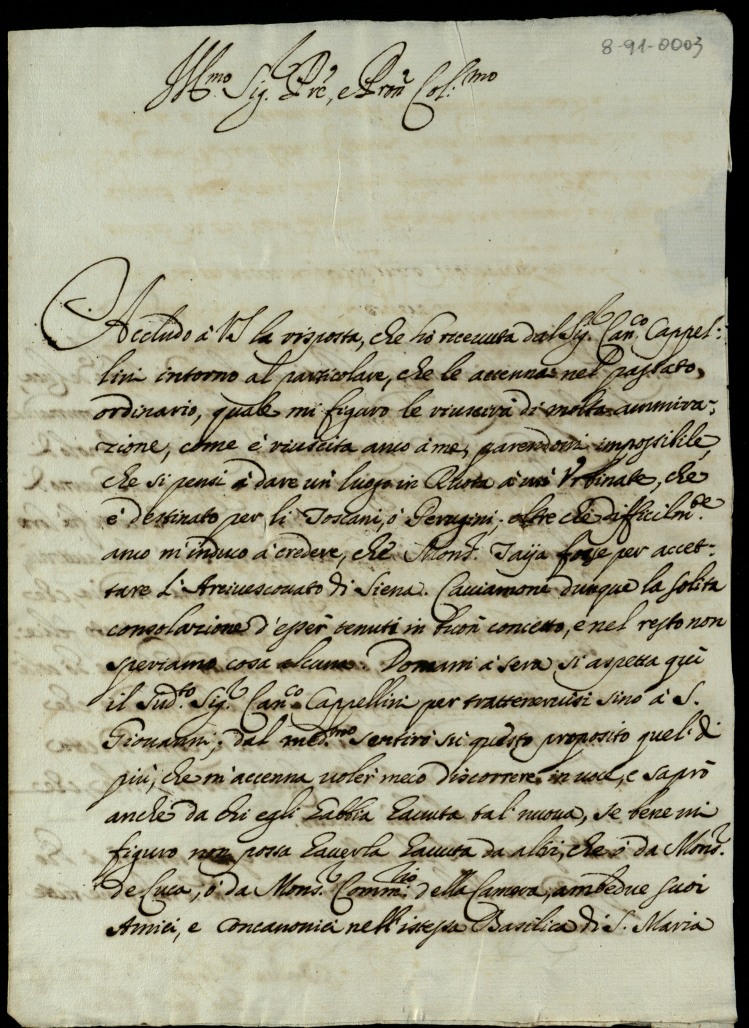 8-91-0003
Ill.mo Sig.r Pre, e Pron Col.mo
Accludo à VS la risposta, che hò riceuuta dal Sig.r Can.co Cappel:
lini intorno al particolare, che le accennai nel passato
ordinario, quale mi figuro le riuscirà di molta ammira:
zione, come è riuscita anco à me, parendomi impossibile,
che si pensi à dare un luogo in Ruota à un Vrbinate, che
è destinato per li Toscani, ò Perugini; oltre che difficilm.te
anco m'induco à credere, che Mons.r Taija fosse per accet:
tare l'Arciuescouato di Siena. Cauiamone dunque la solita
consolazione d'esser tenuti in buon concetto, e nel resto non
speriamo cosa alcuna. Domani à sera si aspetta quì
il Sud.to Sig.r Can.co Cappellini per tratteneruisi sino à S.
Giouanni; dal med.mo sentirò sù questo proposito quel di
più, che m'accenna uoler meco discorrere in uoce, e saprò
anche da chi egli habbia hauuta tal nuoua, se bene mi
figuro non possa hauerla hauuta da altri, che ò da Mons.r
de Cuca, ò da Mons.r Comm.rio della Camera, ambedue suoi
Amici, e Concanonici nell'istessa Basilica di S. Maria